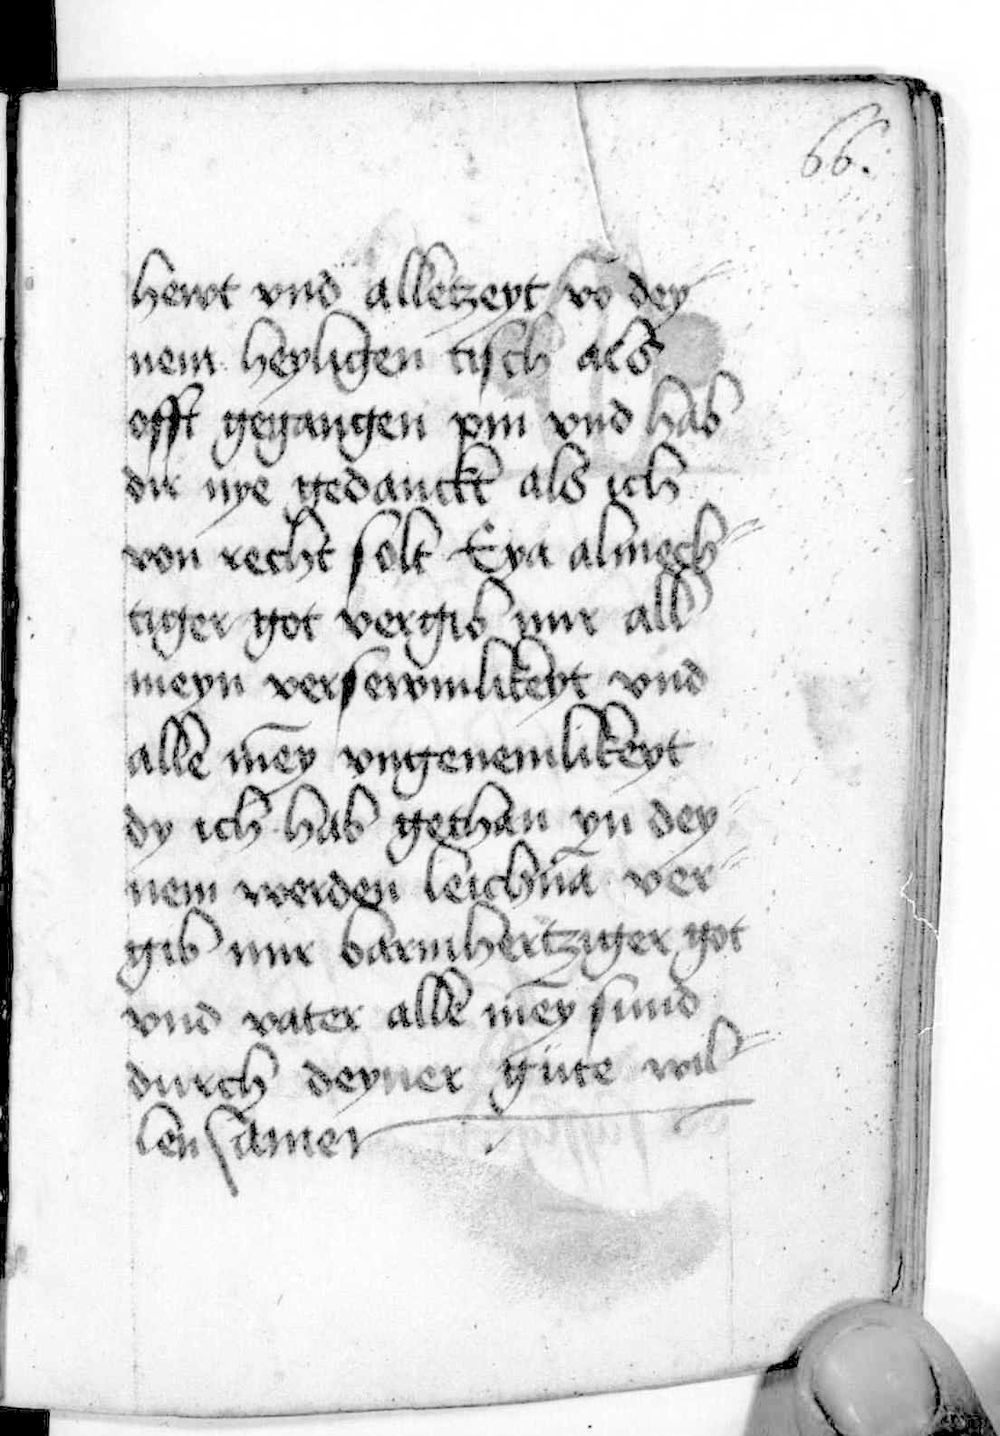 66.
hewt vnd alletzeyt vō dey
nem heyligen tisch als
offt gegangen pin vnd hab
dir nye gedanckt als ich
von recht solt Eya almech
tiger got vergib mir all
meyn versewmlikeyt vnd
alle mēy vngenemlikeyt
dy ich hab gethan yn dey
nem werden leichnā ver
gib mir barmhertziger got
vnd vater alle mēy sund
durch deyner güte wil
len amen